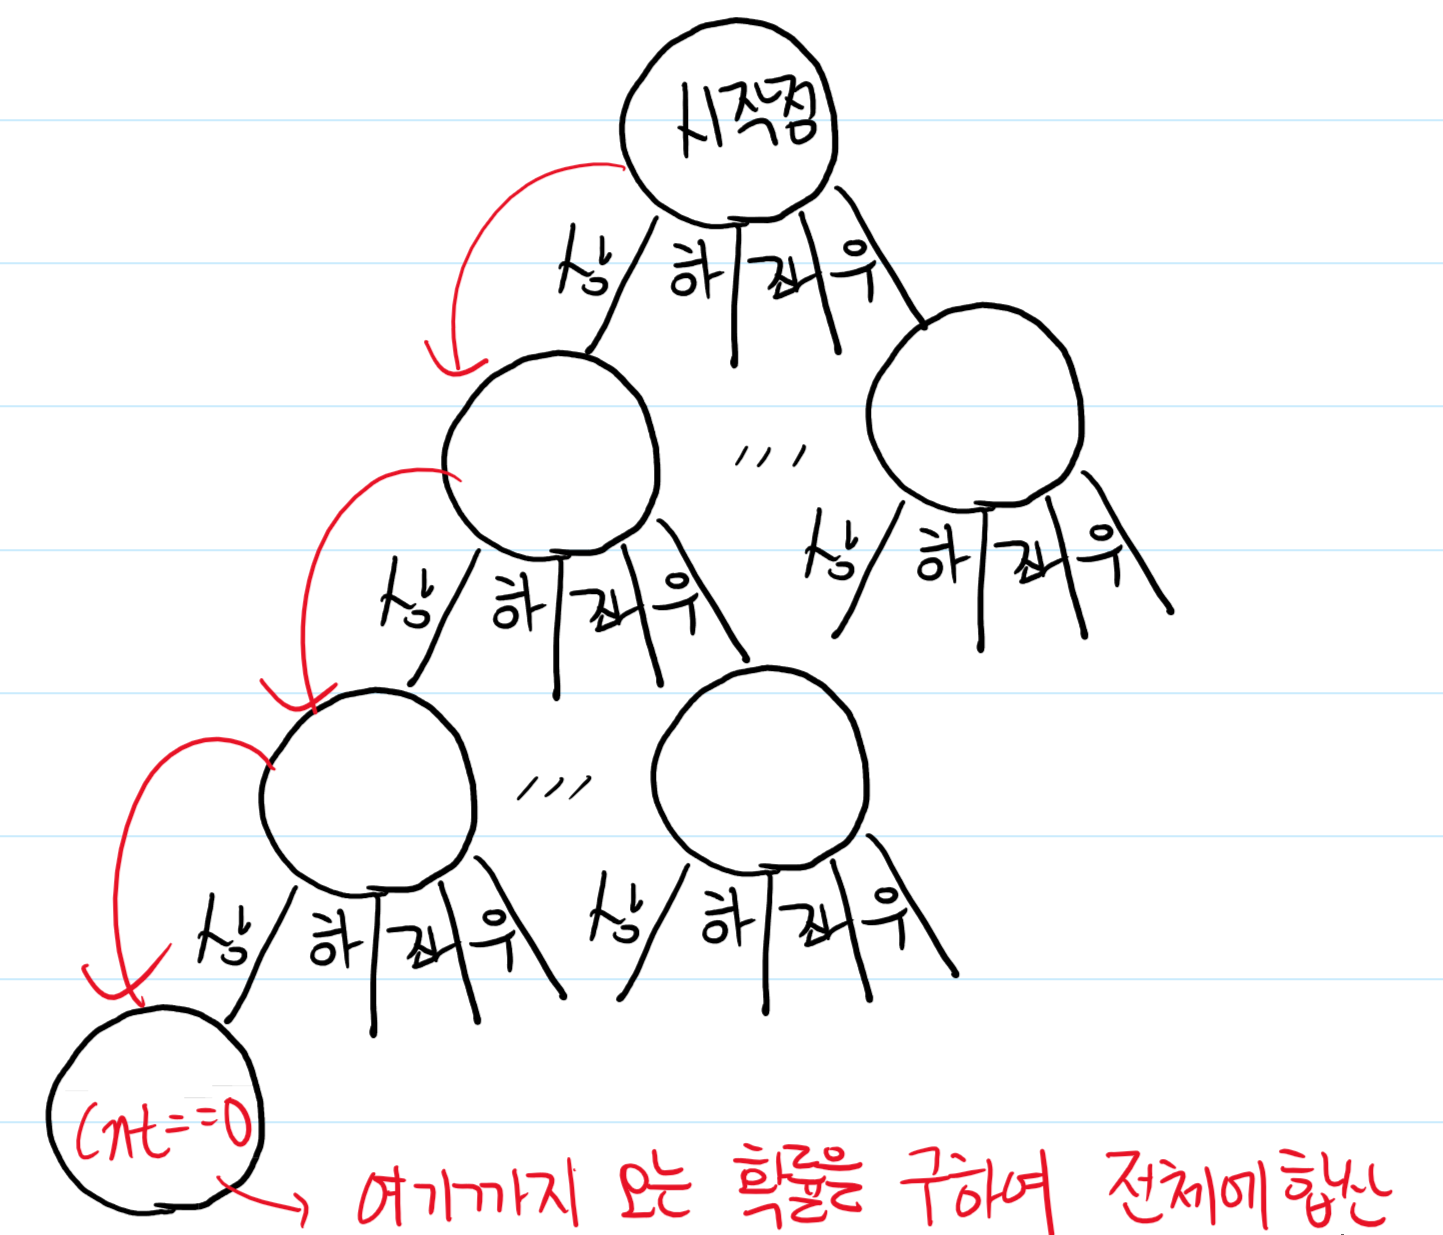 시작점
상 하 좌 우
상 하 좌 우
상 하 좌 우
상 하 좌 우
상 하 좌 우
Cnt==0
여기까지 오는 확률을 구하여 전체에 합산